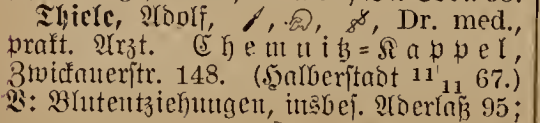 Thiele, Adolf, Dr. med.,
prakt. Arzt. Chemnitz=Kappel,
Zwickauerstr. 148. (Halberstadt 11/11 67.)
V: Blutentziehungen, insbes. Aderlaß 95;